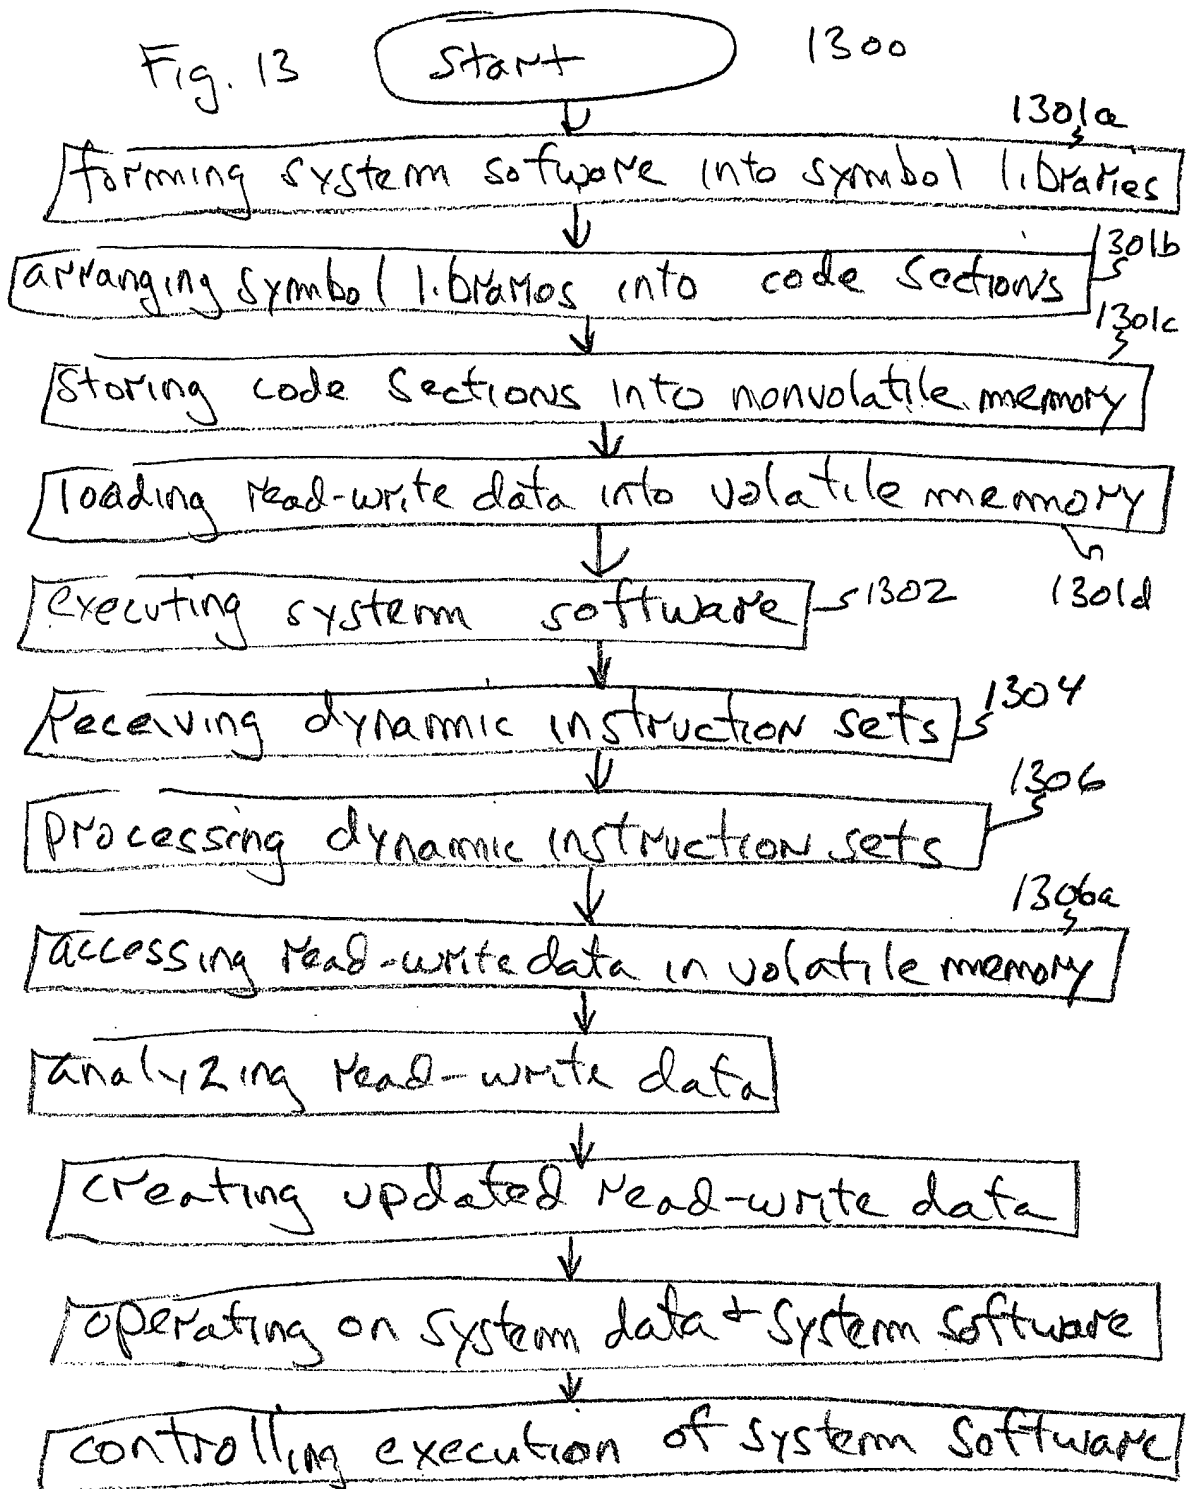 Fig. 13 Start 1300
1301a
forming system software into symbol libraries
1301b
arranging symbol libraries into code sections
1301c
storing code sections into nonvolatile memory
loading read-write data into volatile memory
executing system software 1302 1301d
1304
receiving dynamic instruction sets
1306
processing dynamic instruction sets
1306a
accessing read-write data in volatile memory
analyzing read-write data
creating updated read-write data
operating on system data + system software
controlling execution of system software